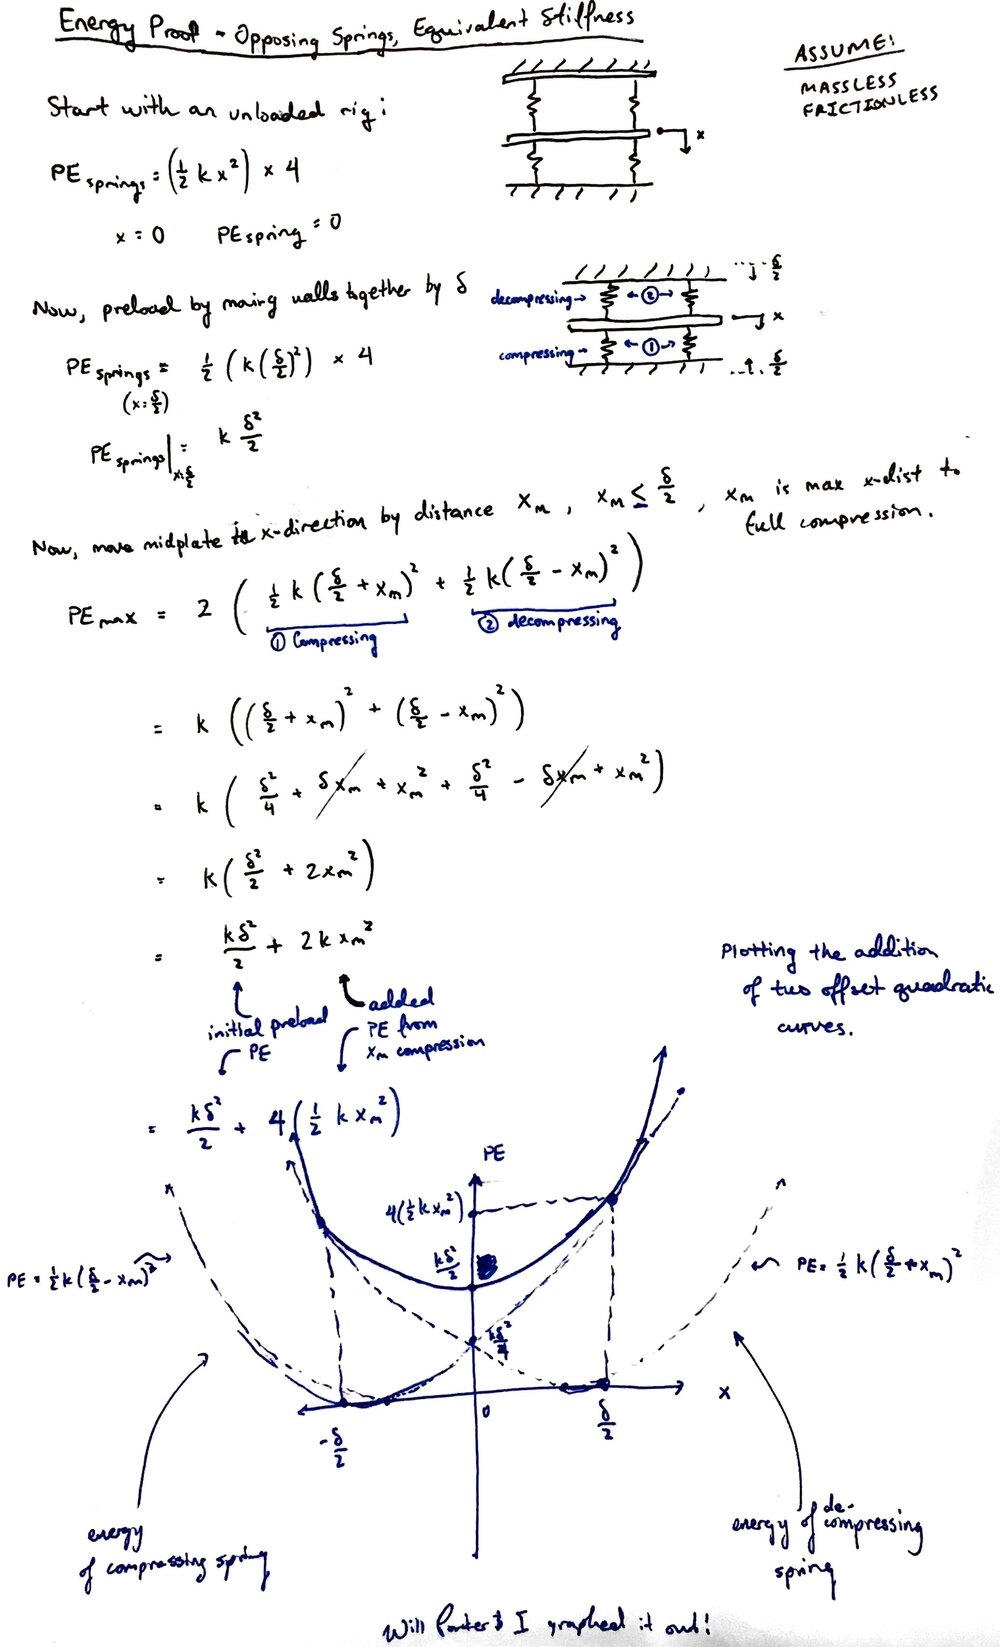 Energy Proof - Opposing Springs, Equivalent Stiffness
ASSUME:
MASSLESS
FRICTIONLESS
Start with an unloaded rig:
x
PE springs = (½ k x²) × 4
x = 0 PE spring = 0
Now, preload by moving walls together by δ
decompressing → ← ② → x
compressing → ← ① →
δ/2
δ/2
PE springs = ½ (k(δ/2)²) × 4
(x=δ/2)
PE springs|x=δ/2 = k δ²/2
Now, move midplate in x-direction by distance xm, xm ≤ δ/2, xm is max x-dist to
full compression.
PE max = 2 ( ½ k (δ/2 + xm)² + ½ k(δ/2 - xm)² )
① Compressing ② decompressing
= k ((δ/2 + xm)² + (δ/2 - xm)²)
= k ( δ²/4 + δxm + xm² + δ²/4 - δxm + xm² )
= k(δ²/2 + 2xm²)
= kδ²/2 + 2k xm²
initial preload
PE
added
PE from
xm compression
Plotting the addition
of two offset quadratic
curves.
= kδ²/2 + 4(½ k xm²)
PE
4(½ k xm²)
kδ²/2
kδ²/4
PE = ½ k(δ/2 - xm)²
PE = ½ k(δ/2 + xm)²
x
0
-δ/2
δ/2
energy
of compressing spring
energy of de-compressing
spring
Will & I graphed it out!